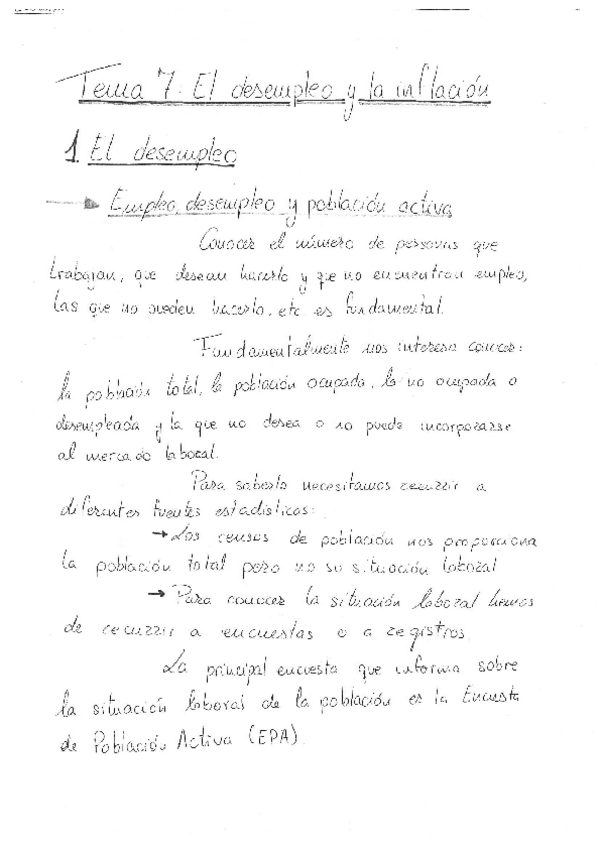 Tema 7: El desempleo y la inflación
1. El desempleo
→ Empleo, desempleo y población activa
Conocer el número de personas que
trabajan, que desean hacerlo y que no encuentran empleo,
las que no pueden hacerlo, etc es fundamental.
Fundamentalmente nos interesa conocer:
la población total, la población ocupada, la no ocupada o
desempleada y la que no desea o no puede incorporarse
al mercado laboral.
Para saberlo necesitamos recurrir a
diferentes fuentes estadísticas:
→ Los censos de población nos proporciona
la población total pero no su situación laboral
→ Para conocer la situación laboral hemos
de recurrir a encuestas o a registros.
La principal encuesta que informa sobre
la situación laboral de la población es la Encuesta
de Población Activa (EPA).